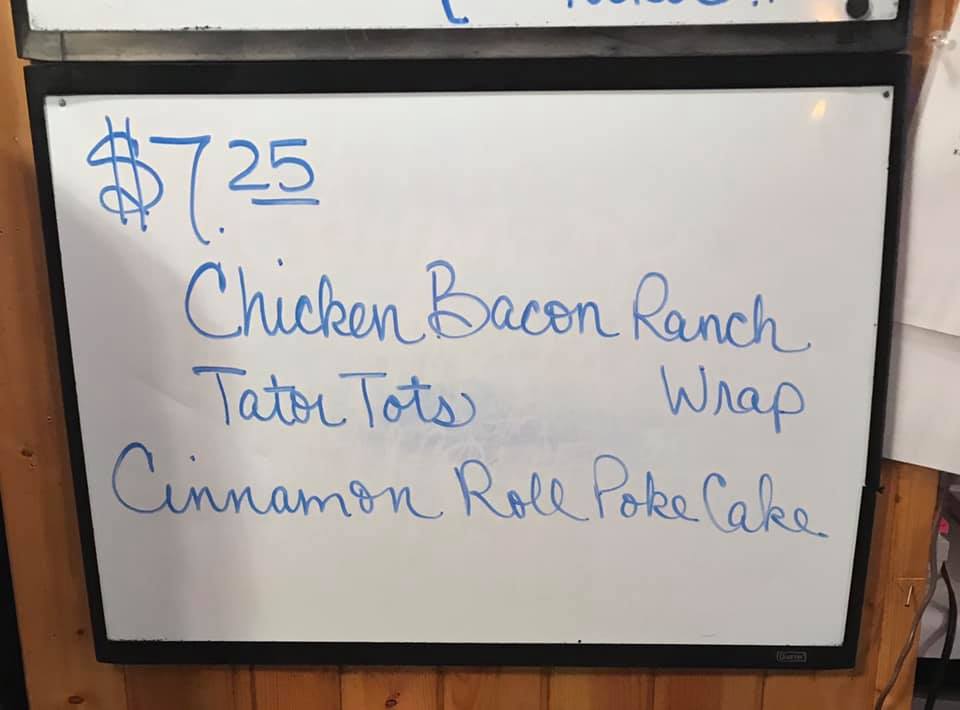 $7.25
Chicken Bacon Ranch
Tator Tots Wrap
Cinnamon Roll Poke Cake
Quartet